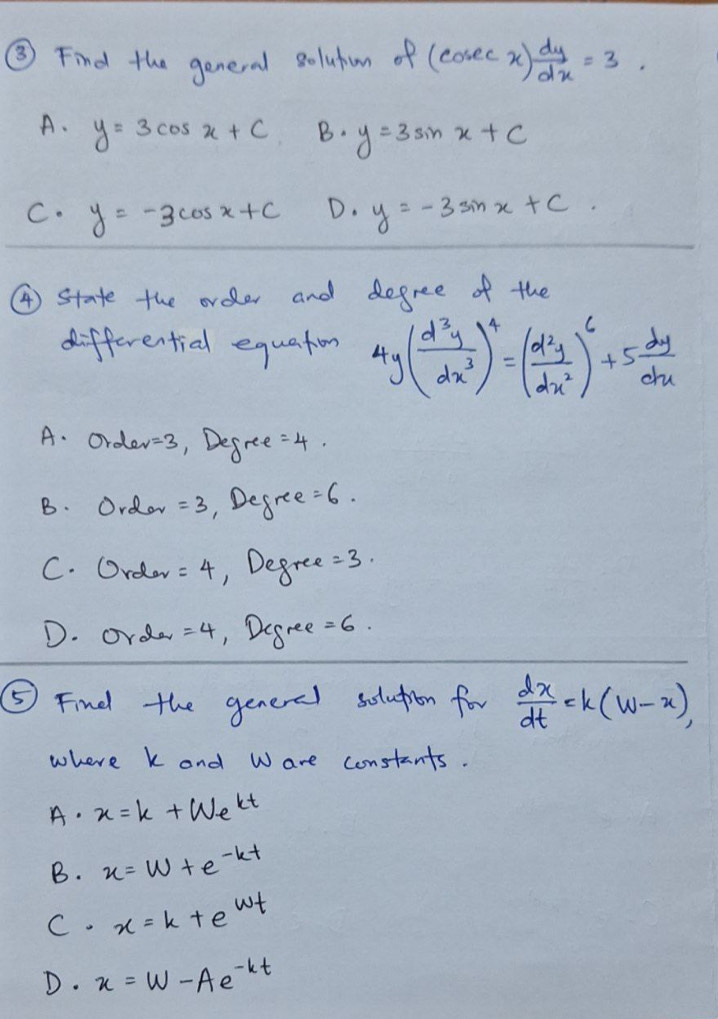 ③ Find the general solution of (cosec x) dy/dx = 3 .
A. y = 3 cos x + C B. y = 3 sin x + C
C. y = -3 cos x + C D. y = -3 sin x + C .
④ State the order and degree of the
differential equation 4y (d³y/dx³)⁴ = (d²y/dx²)⁶ + 5 dy/dx
A. Order=3, Degree = 4 .
B. Order = 3, Degree = 6 .
C. Order = 4, Degree = 3 .
D. Order = 4, Degree = 6 .
⑤ Find the general solution for dx/dt = k(W-x),
where k and W are constants .
A. x = k + We^kt
B. x = W + e^-kt
C. x = k + e^Wt
D. x = W - Ae^-kt